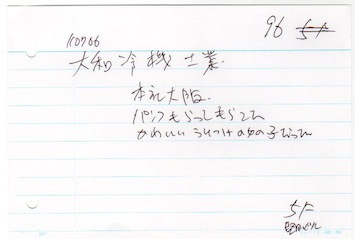 96 5F
110706
大和冷機工業.
本社大阪.
パンフもらってもらって
かわいいうけつけの女の子だった
5F